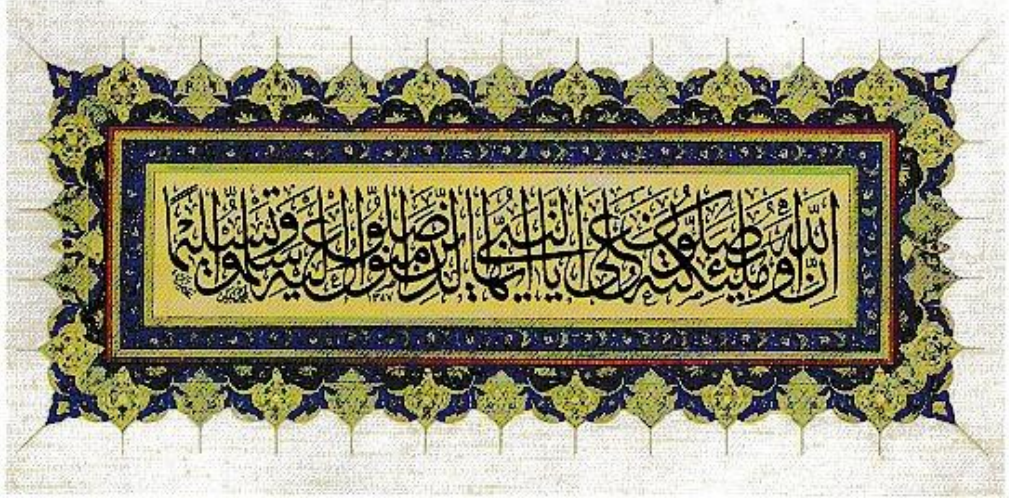 إنّ اللّٰه وملئكته يصلّون على النّبيّ يا أيّها الّذين آمنوا صلّوا عليه وسلّموا تسليمًا